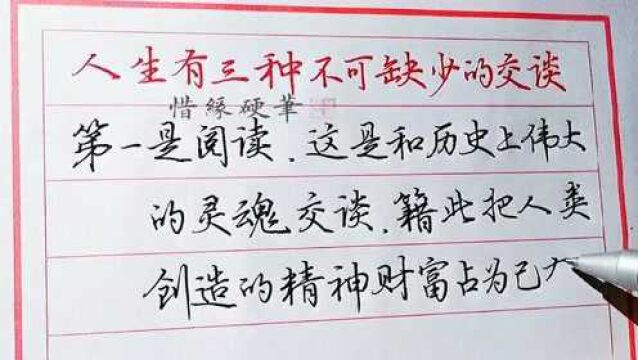 人生有三种不可缺少的交谈
惜緣硬筆
第一是阅读.这是和历史上伟大
的灵魂交谈.籍此把人类
创造的精神财富占为己